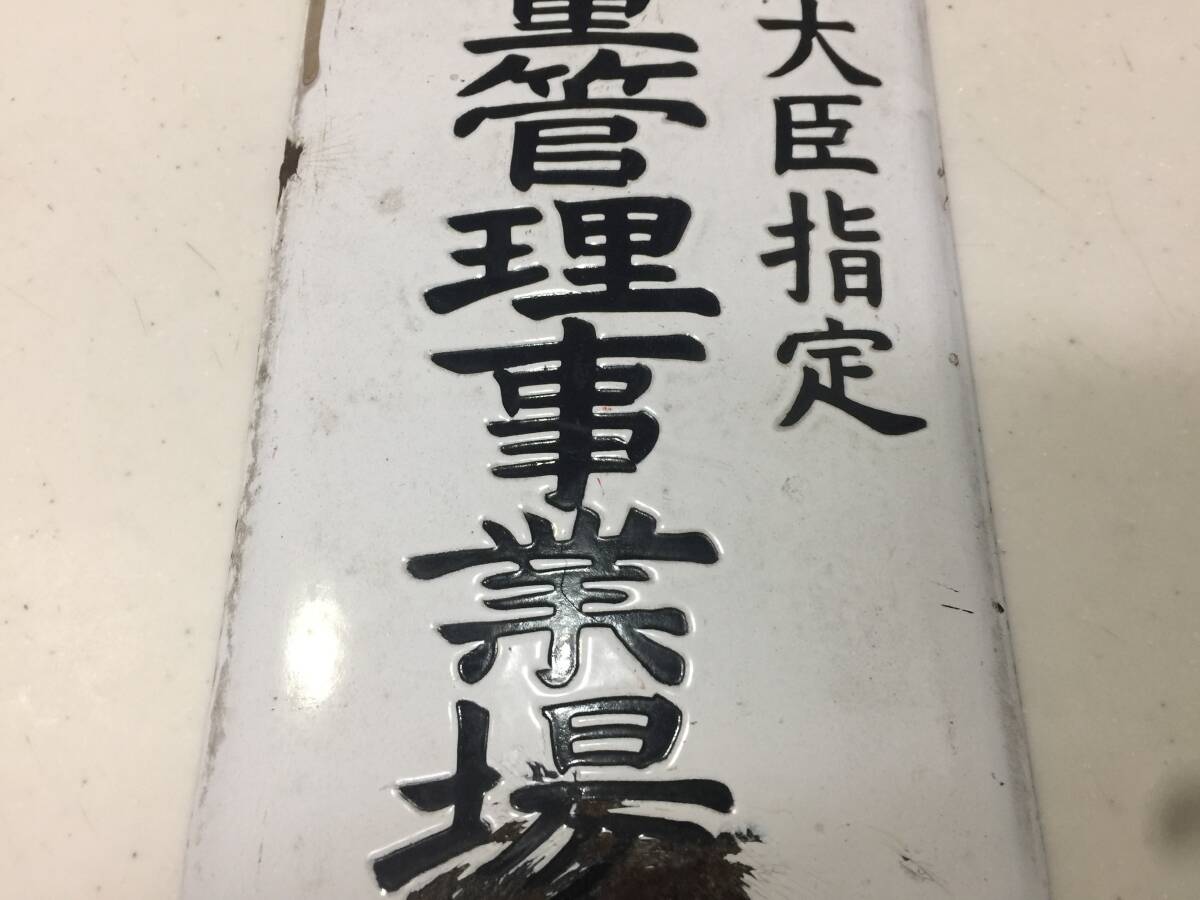 大臣指定
量管理事業場